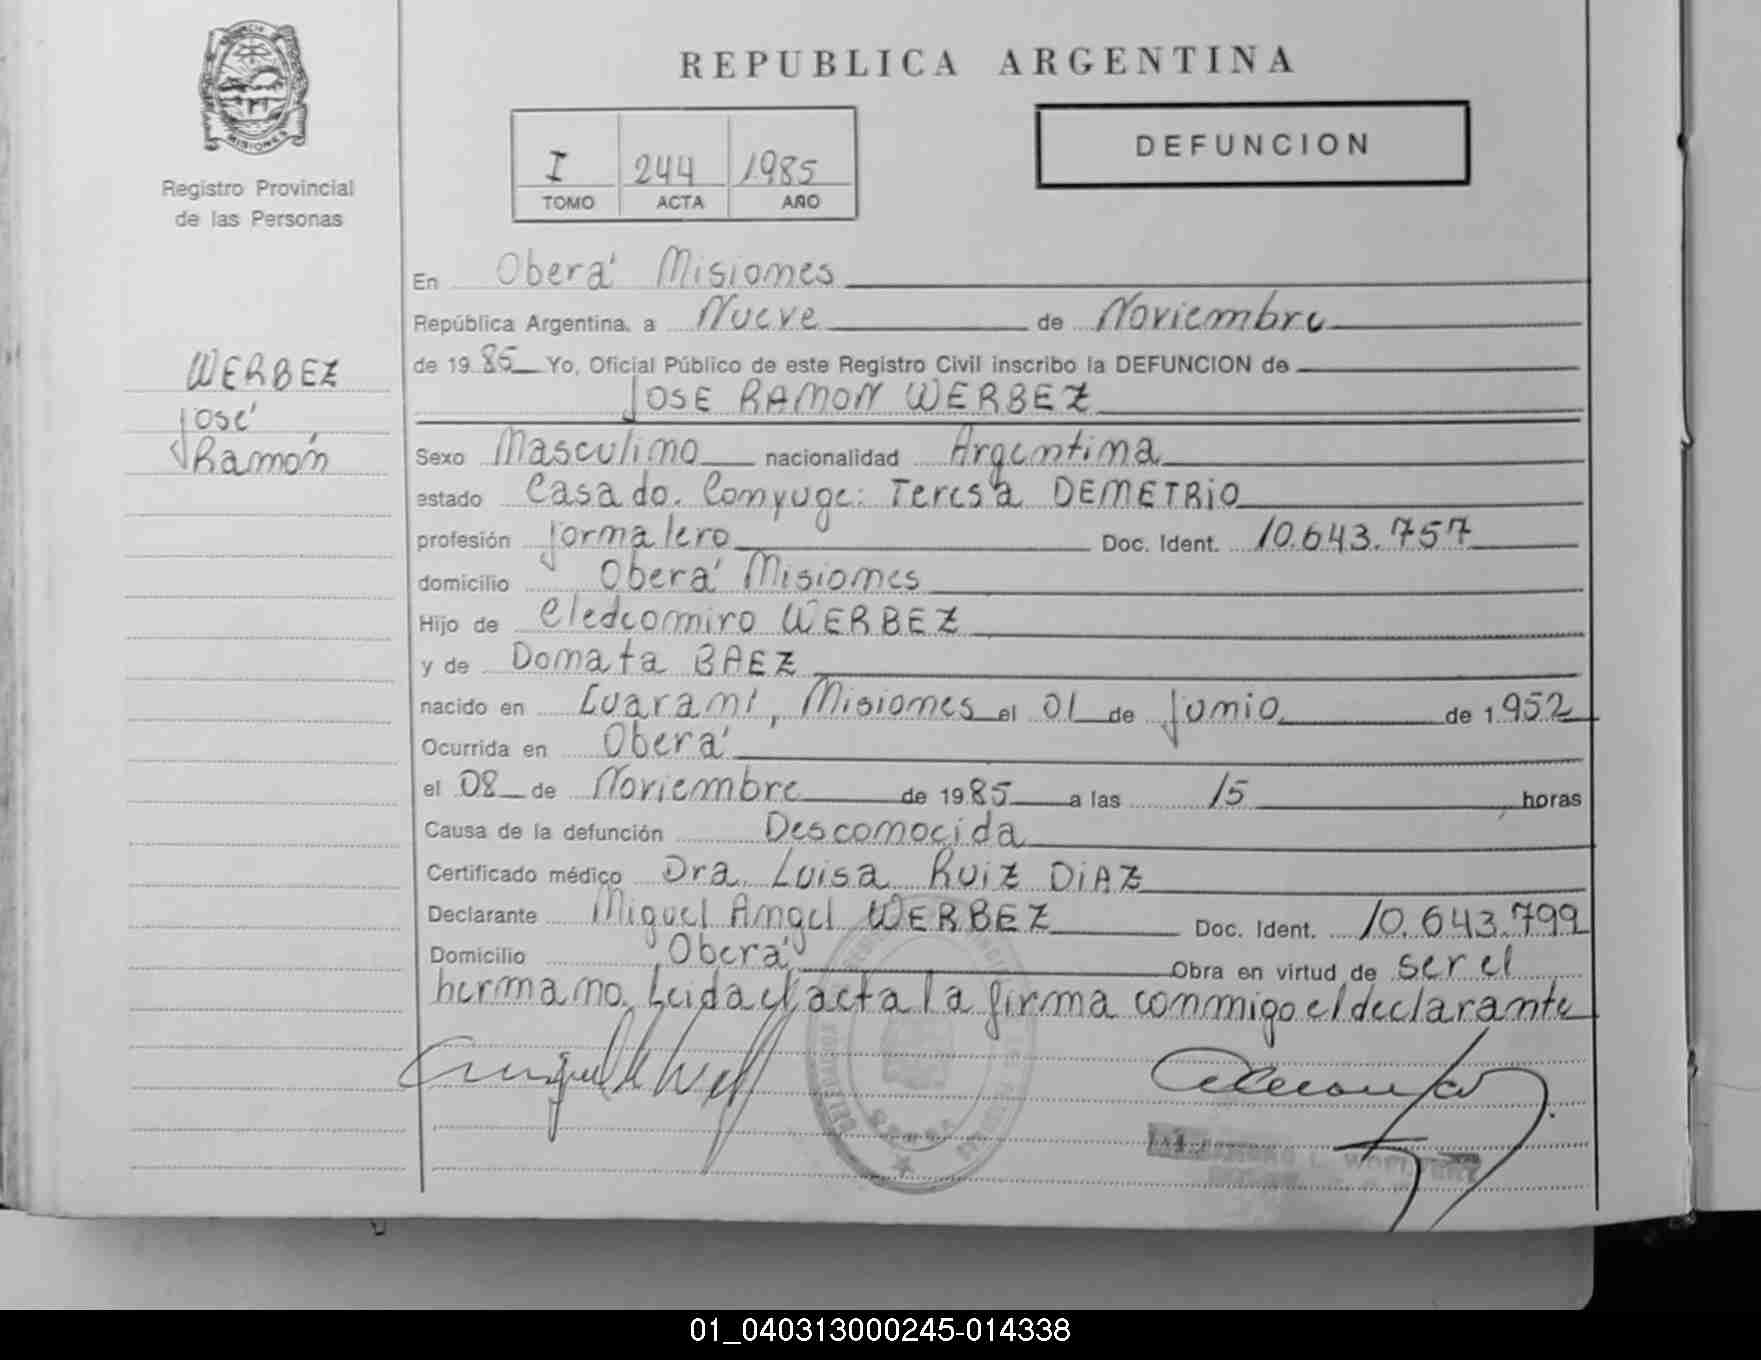 REPUBLICA ARGENTINA
MISIONES
Registro Provincial
de las Personas
I 244 1985
TOMO ACTA AÑO
DEFUNCION
WERBEZ
José
Ramón
En Oberá Misiones
República Argentina, a Nueve de Noviembre
de 1985 Yo, Oficial Público de este Registro Civil inscribo la DEFUNCION de
JOSE RAMON WERBEZ
Sexo Masculino nacionalidad Argentina
estado Casado. Conyuge: Teresa DEMETRIO
profesión Jornalero Doc. Ident. 10.643.757
domicilio Oberá Misiones
Hijo de Cledcomiro WERBEZ
y de Donata BAEZ
nacido en Guaraní, Misiones el 01 de Junio de 1.952
Ocurrida en Oberá
el 08 de Noviembre de 1985 a las 15 horas
Causa de la defunción Desconocida
Certificado médico Dra. Luisa RUIZ DIAZ
Declarante Miguel Angel WERBEZ Doc. Ident. 10.643.799
Domicilio Oberá Obra en virtud de ser el
hermano. Leida el acta la firma conmigo el declarante
01_040313000245-014338